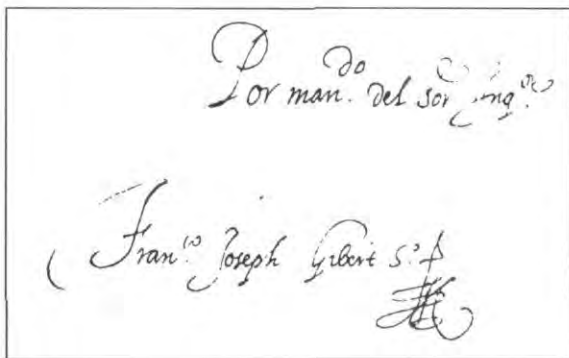 Por man.do del Sor Inq.or
Fran.co Joseph Gibert S.o